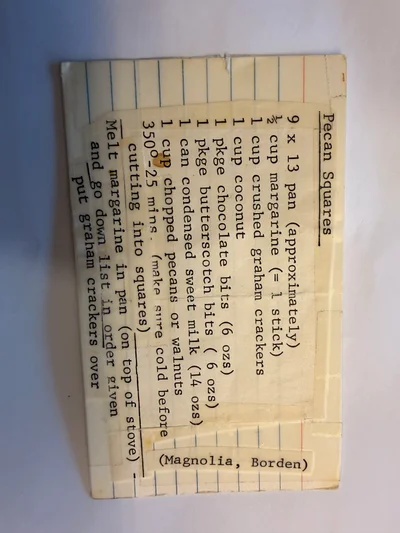 Pecan Squares
9 x 13 pan (approximately)
½ cup margarine (= 1 stick)
1 cup crushed graham crackers
1 cup coconut
1 pkge chocolate bits (6 ozs)
1 pkge butterscotch bits ( 6 ozs)
1 can condensed sweet milk (14 ozs) (Magnolia, Borden)
1 cup chopped pecans or walnuts
350°-25 mins. (make sure cold before
cutting into squares)
Melt margarine in pan (on top of stove) -
and go down list in order given
put graham crackers over